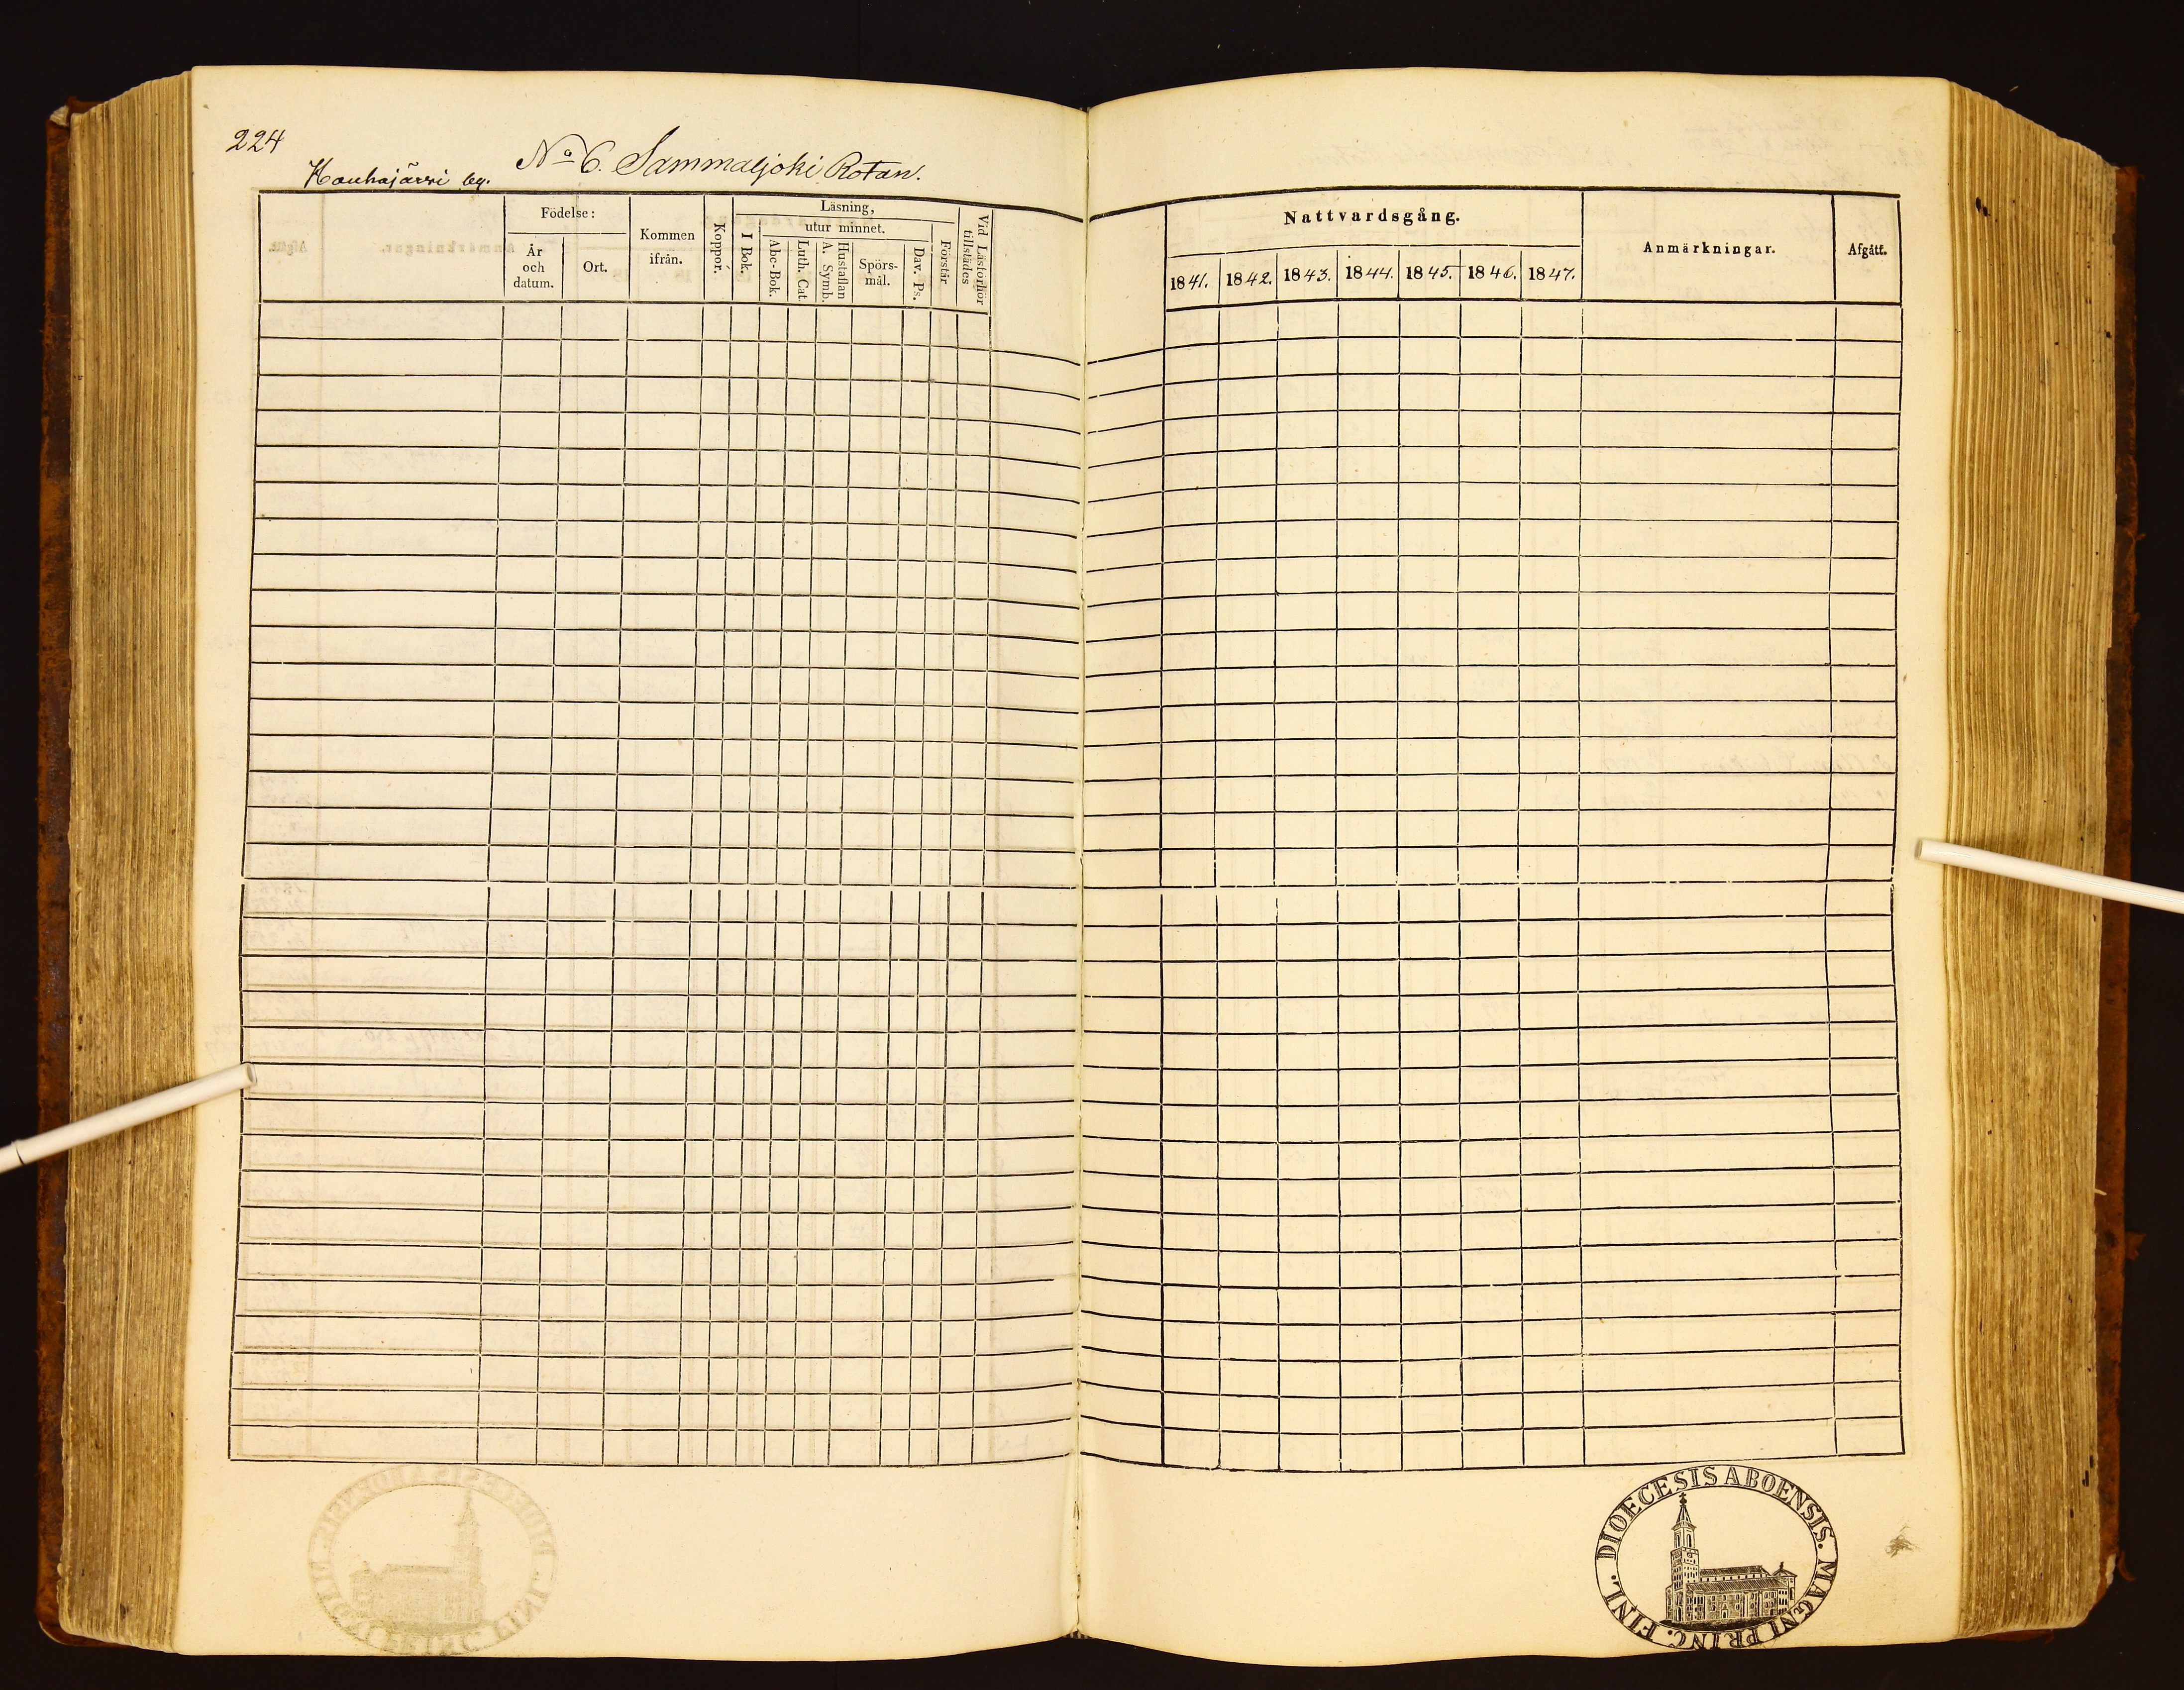 224
Kauhajärwi by.
No 6. Sammaljoki Rotan.
Födelse:
År och datum.
Ort.
Kommen ifrån.
Koppor.
Läsning,
I Bok.
utur minnet.
Abc-Bok.
Luth. Cat.
Hustaflan A. Symb.
Spörs-mål.
Dav. Ps.
Förstår
Vid Läsförhör tillstädes
Nattvardsgång.
1841. 1842. 1843. 1844. 1845. 1846. 1847.
Anmärkningar.
Afgått.
DIOECESIS ABOENSIS. MAGNI PRINC. FINL.